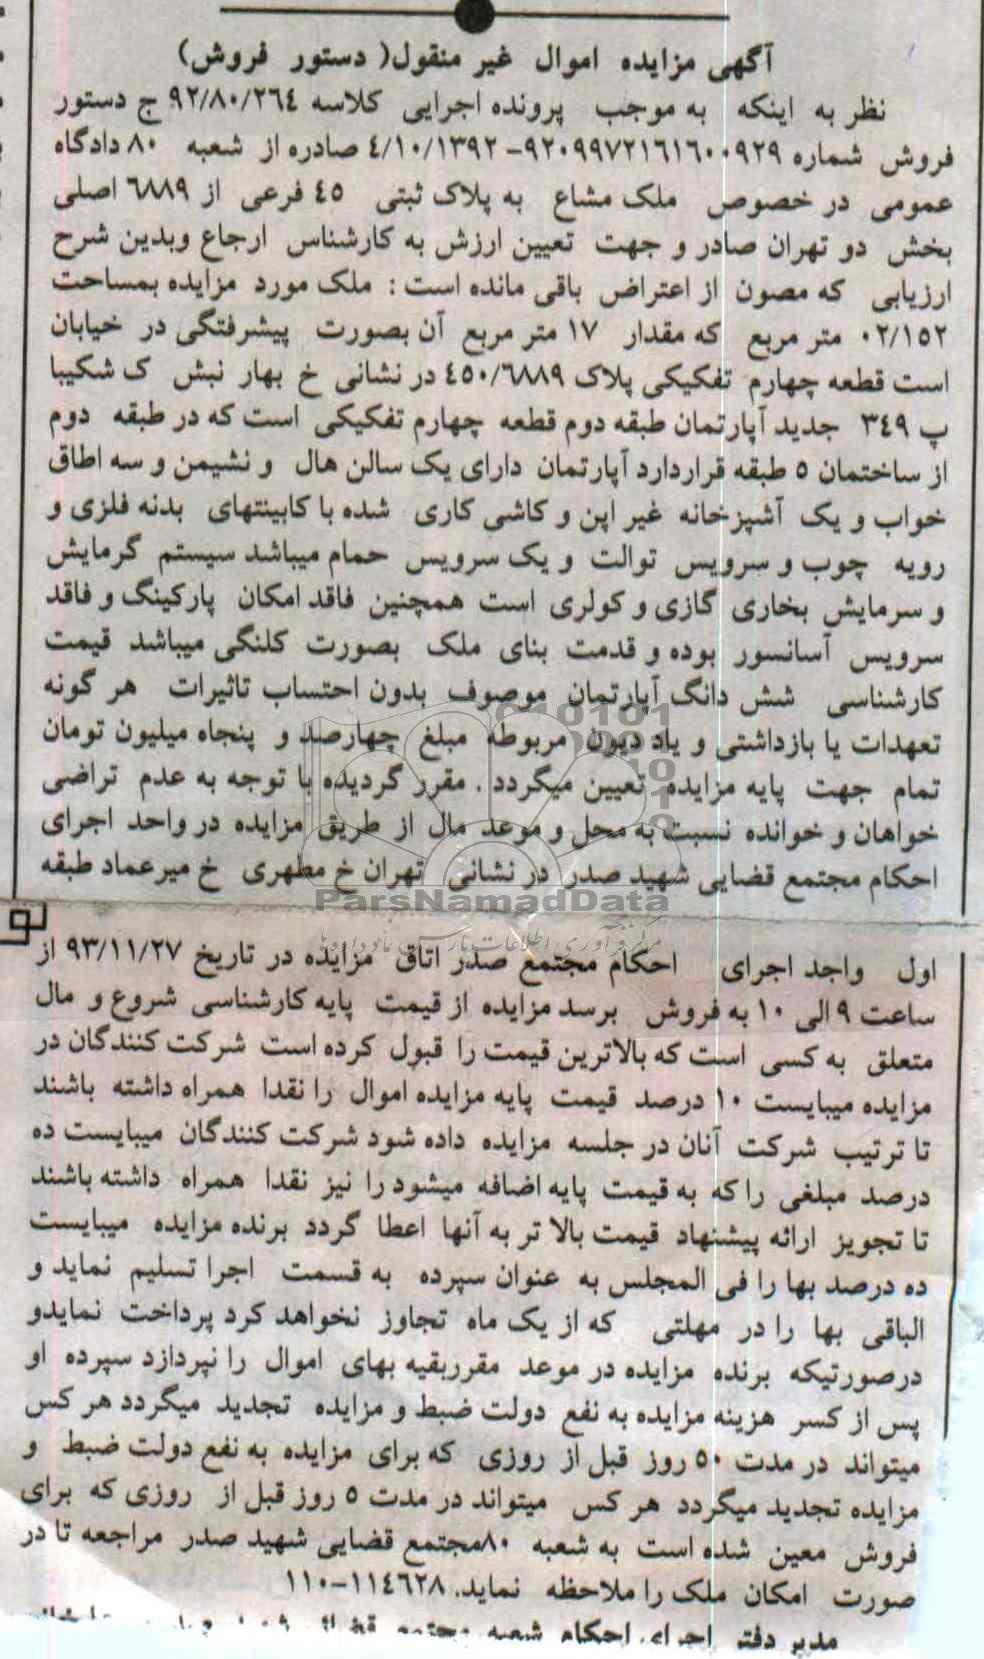 آگهی مزایده اموال غیر منقول( دستور فروش)
نظر به اینکه به موجب پرونده اجرایی کلاسه ٩٢/٨٠/٢٦٤ ج دستور
فروش شماره ٩٢٠٩٩٧٢١٦١٦٠٠٩٢٩-٤/١٠/١٣٩٢ صادره از شعبه ٨٠ دادگاه
عمومی در خصوص ملک مشاع به پلاک ثبتی ٤٥ فرعی از ٦٨٨٩ اصلی
بخش دو تهران صادر و جهت تعیین ارزش به کارشناس ارجاع وبدین شرح
ارزیابی که مصون از اعتراض باقی مانده است : ملک مورد مزایده بمساحت
٠٢/١٥٢ متر مربع که مقدار ١٧ متر مربع آن بصورت پیشرفتگی در خیابان
است قطعه چهارم تفکیکی پلاک ٤٥٠/٦٨٨٩ در نشانی خ بهار نبش ک شکیبا
پ ٣٤٩ جدید آپارتمان طبقه دوم قطعه چهارم تفکیکی است که در طبقه دوم
از ساختمان ٥ طبقه قراردارد آپارتمان دارای یک سالن هال و نشیمن و سه اطاق
خواب و یک آشپزخانه غیر اپن و کاشی کاری شده با کابینتهای بدنه فلزی و
رویه چوب و سرویس توالت و یک سرویس حمام میباشد سیستم گرمایش
و سرمایش بخاری گازی و کولری است همچنین فاقد امکان پارکینگ و فاقد
سرویس آسانسور بوده و قدمت بنای ملک بصورت کلنگی میباشد قیمت
کارشناسی شش دانگ آپارتمان موصوف بدون احتساب تاثیرات هر گونه
تعهدات یا بازداشتی و یاد دیون مربوطه مبلغ چهارصد و پنجاه میلیون تومان
تمام جهت پایه مزایده تعیین میگردد . مقرر گردیده با توجه به عدم تراضی
خواهان و خوانده نسبت به محل و موعد مال از طریق مزایده در واحد اجرای
احکام مجتمع قضایی شهید صدر در نشانی تهران خ مطهری خ میرعماد طبقه
ParsNamadData
اول واجد اجرای احکام مجتمع صدر اتاق مزایده در تاریخ ٩٣/١١/٢٧ از
ساعت ٩ الی ١٠ به فروش برسد مزایده از قیمت پایه کارشناسی شروع و مال
متعلق به کسی است که بالاترین قیمت را قبول کرده است شرکت کنندگان در
مزایده میبایست ١٠ درصد قیمت پایه مزایده اموال را نقدا همراه داشته باشند
تا ترتیب شرکت آنان در جلسه مزایده داده شود شرکت کنندگان میبایست ده
درصد مبلغی را که به قیمت پایه اضافه میشود را نیز نقدا همراه داشته باشند
تا تجویز ارائه پیشنهاد قیمت بالا تر به آنها اعطا گردد برنده مزایده میبایست
ده درصد بها را فی المجلس به عنوان سپرده به قسمت اجرا تسلیم نماید و
الباقی بها را در مهلتی که از یک ماه تجاوز نخواهد کرد پرداخت نمایدو
درصورتیکه برنده مزایده در موعد مقرربقیه بهای اموال را نپردازد سپرده او
پس از کسر هزینه مزایده به نفع دولت ضبط و مزایده تجدید میگردد هر کس
میتواند در مدت ٥٠ روز قبل از روزی که برای مزایده به نفع دولت ضبط و
مزایده تجدید میگردد هر کس میتواند در مدت ٥ روز قبل از روزی که برای
فروش معین شده است به شعبه ٨٠مجتمع قضایی شهید صدر مراجعه تا در
صورت امکان ملک را ملاحظه نماید. ١١٤٦٢٨-١١٠
مدیر دفتر اجرای احکام شعبه مجتمع